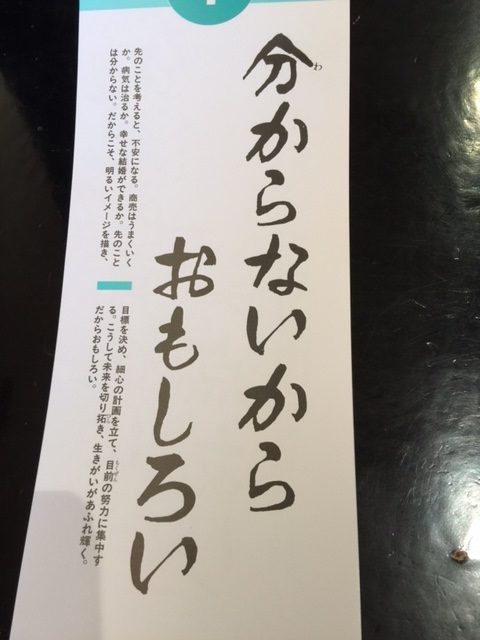 分からないから
おもしろい
先のことを考えると、不安になる。商売はうまくいく
か。病気は治るか。幸せな結婚ができるか。先のこと
は分からない。だからこそ、明るいイメージを描き、
目標を決め、細心の計画を立て、目前の努力に集中す
る。こうして未来を切り拓き、生きがいがあふれ輝く。
だからおもしろい。